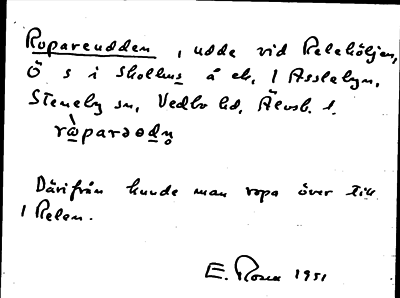 Ropareudden, udde vid Relehöljen,
Ö s i Skolhus å ek. 1 Asslebyn,
Steneby sn, Vedbo hd, Älvsb. l.
Därifrån kunde man ropa över till
1 Relen.
E. Rosen 1951